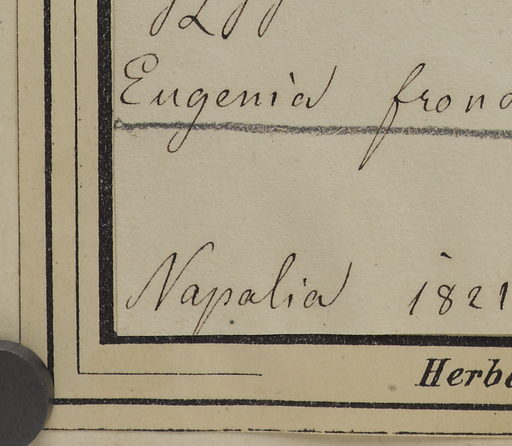 Eugenia frond
Napalia 1821
Herb